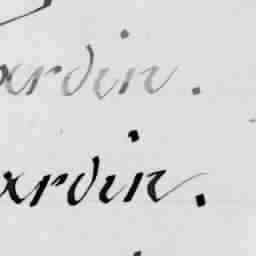 ardin.
ardin.